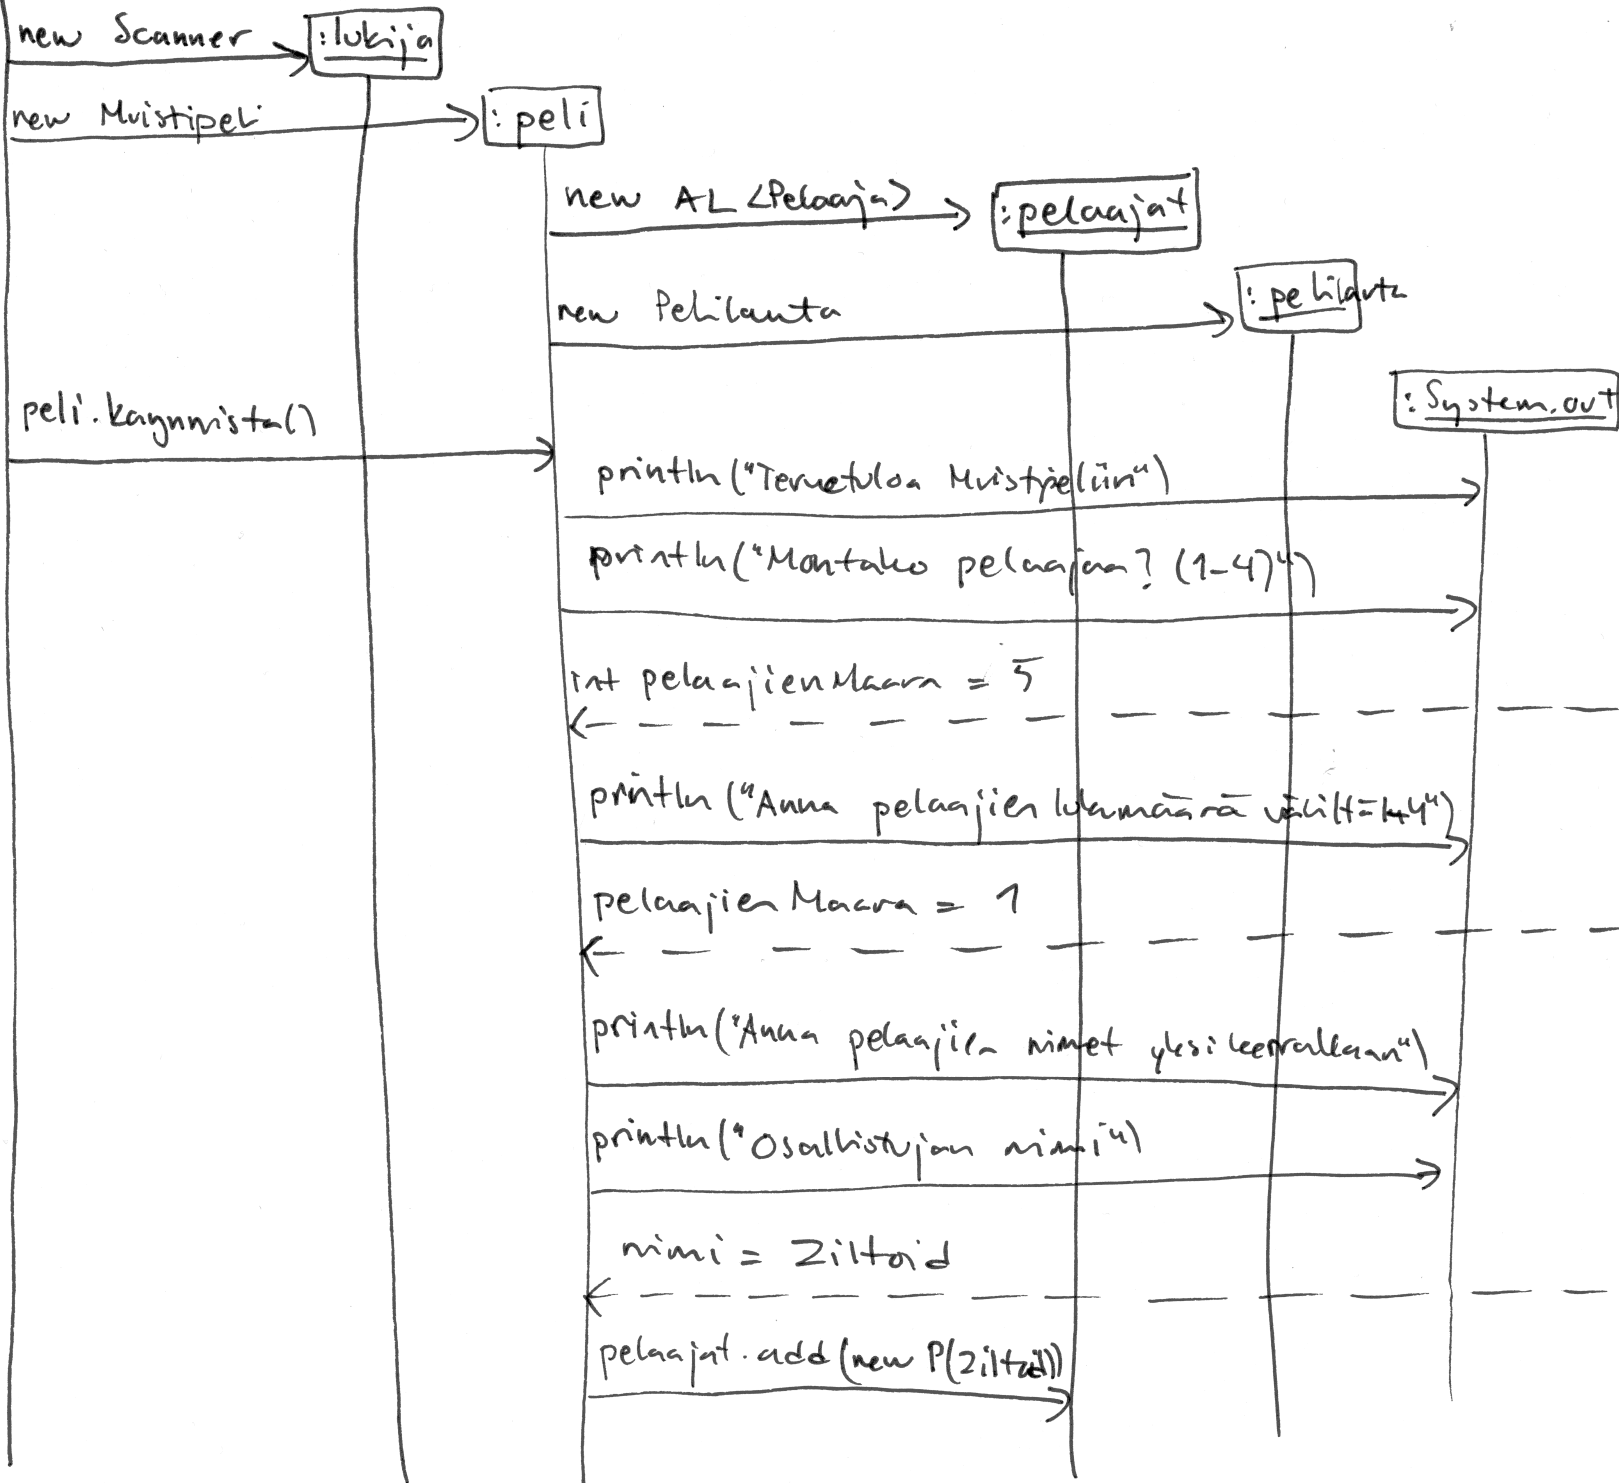 new Scanner
:lukija
new Muistipeli
:peli
new AL <Pelaaja>
:pelaajat
new Pelilauta
:pelilauta
:System.out
peli.kaynnista()
println("Tervetuloa Muistipeliin")
println("Montako pelaajaa? (1-4)")
int pelaajienMaara = 5
println("Anna pelaajien lukumäärä väliltä 1-4")
pelaajienMaara = 1
println("Anna pelaajien nimet yksi kerrallaan")
println("Osallistujan nimi")
nimi = Ziltoid
pelaajat.add(new P(Ziltoid))